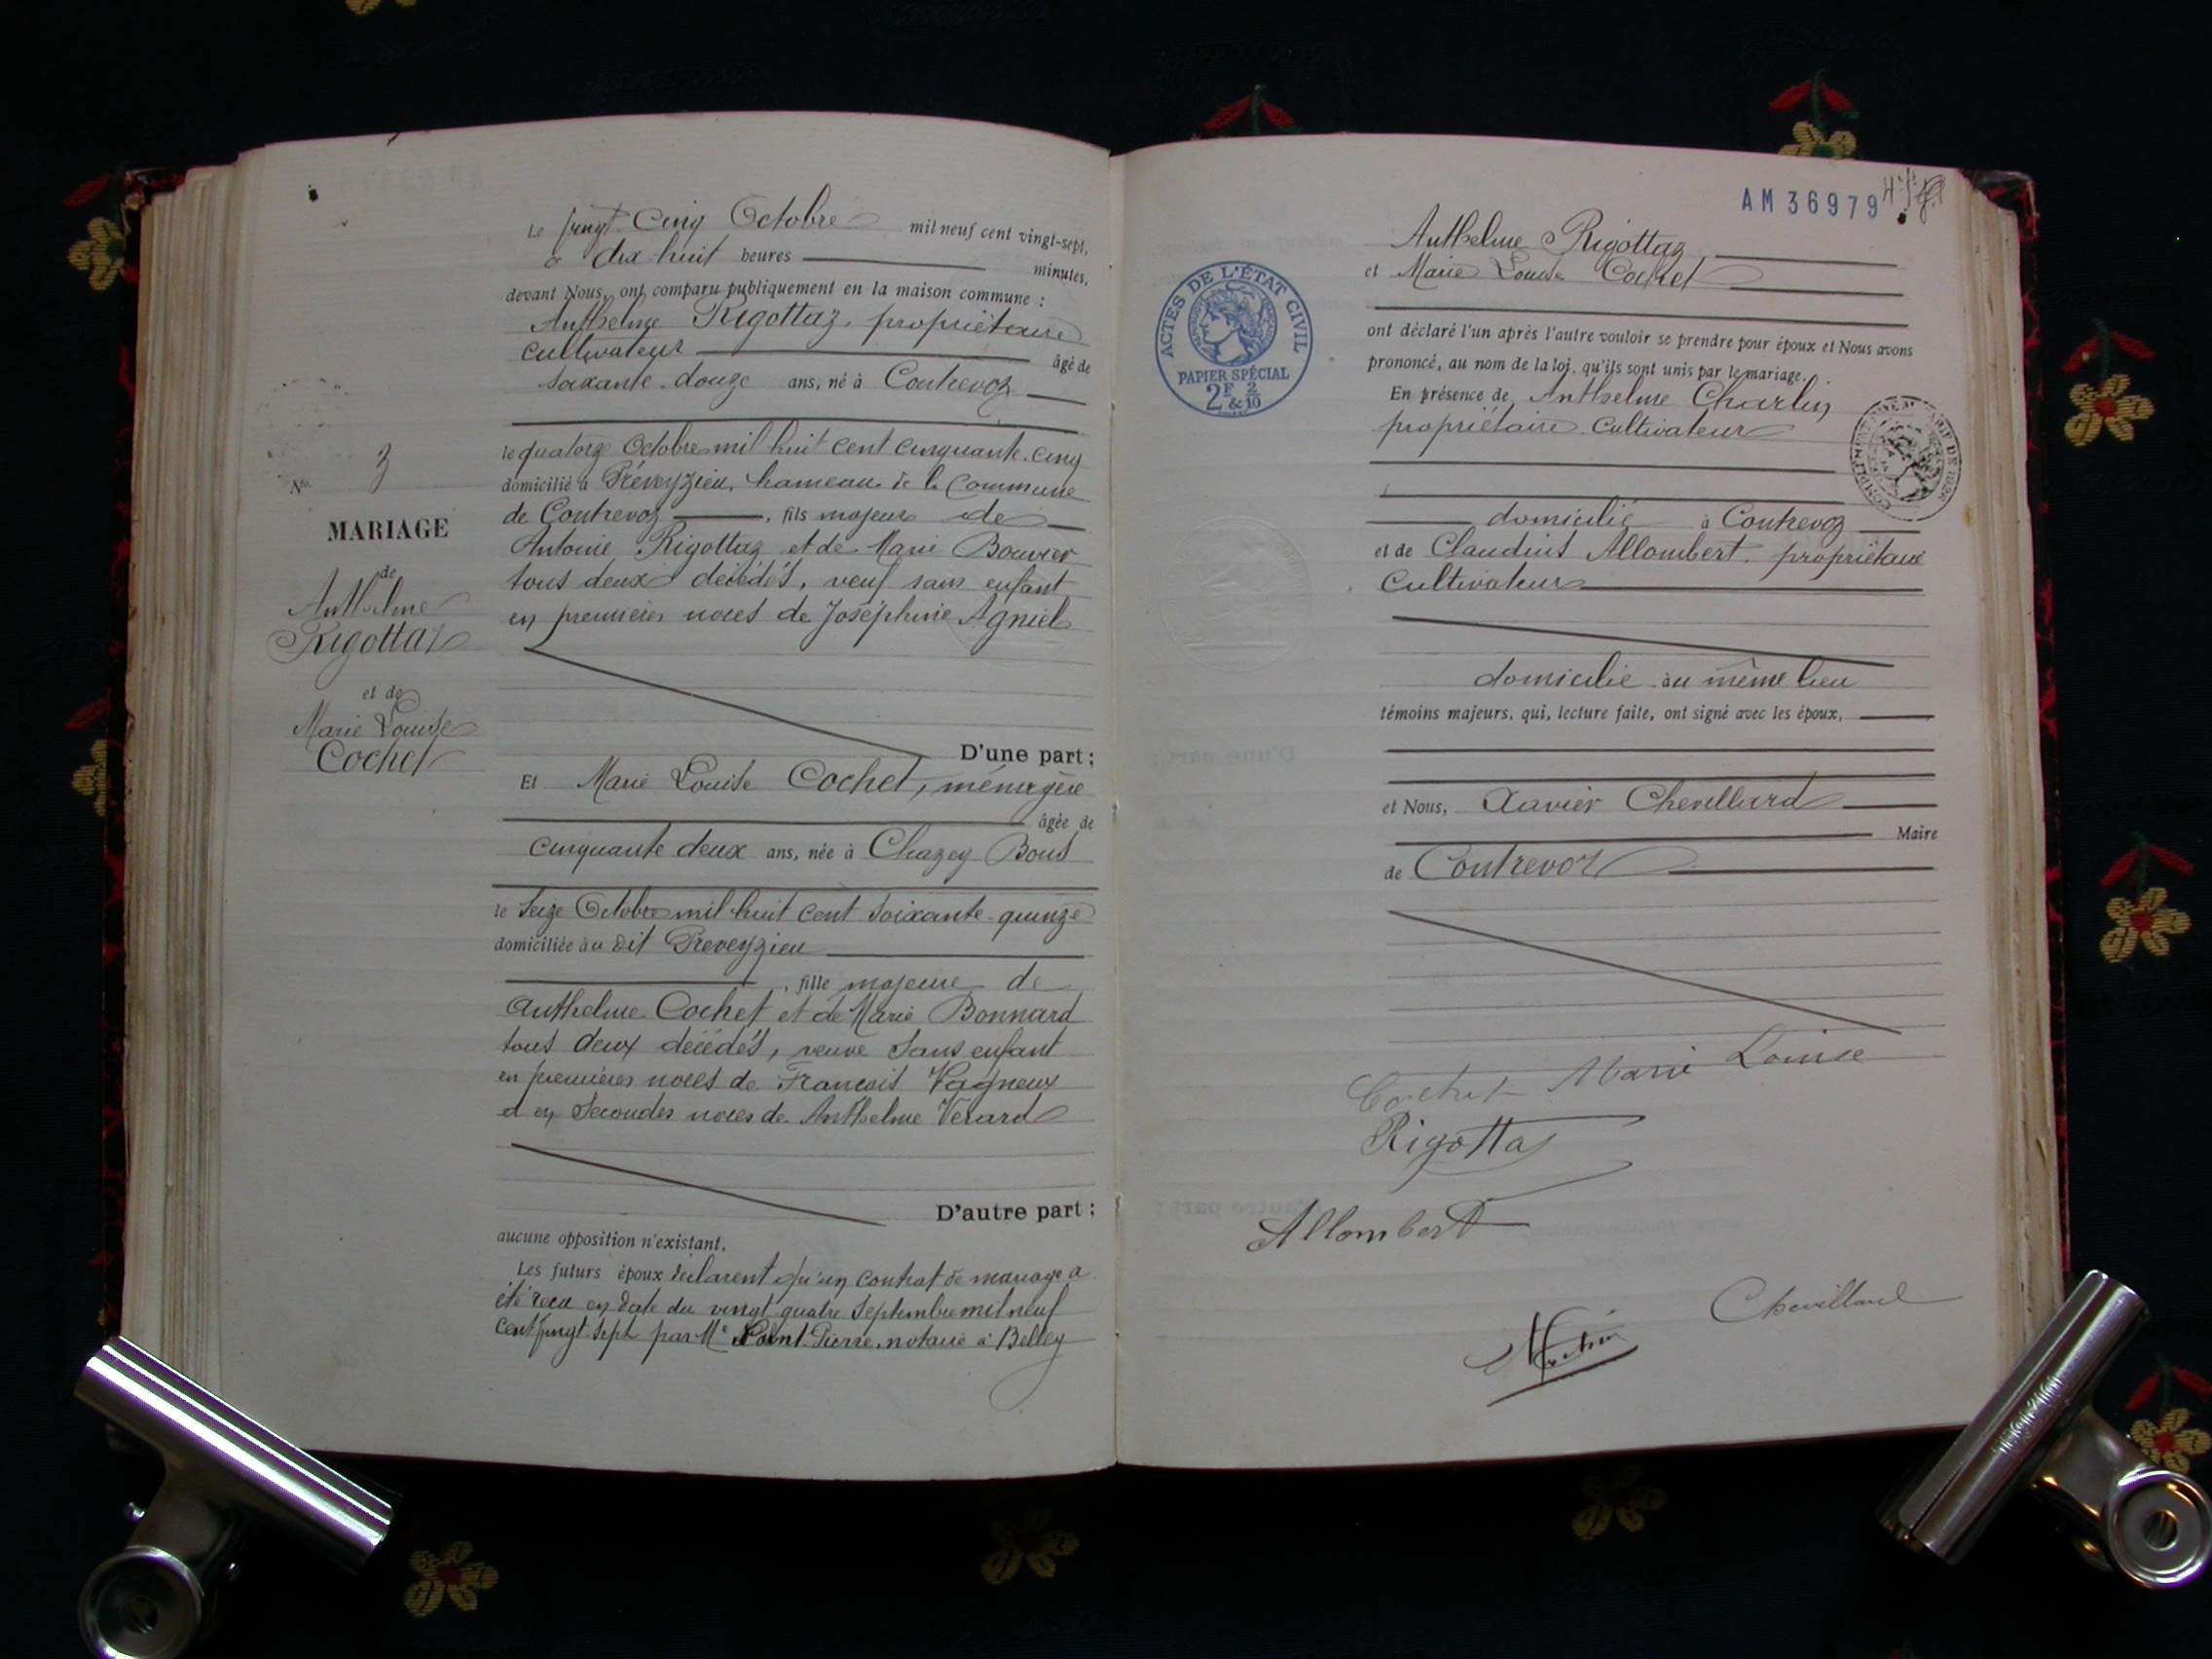 Le vingt cinq Octobre mil neuf cent vingt-sept,
à dix huit heures minutes,
devant Nous, ont comparu publiquement en la maison commune :
Anthelme Rigottaz, propriétaire
cultivateur âgé de
soixante-douze ans, né à Contrevoz
le quatorze Octobre mil huit cent cinquante-cinq
domicilié à Préveyzieu, hameau de la Commune
de Contrevoz, fils majeur de
Antoine Rigottaz et de Marie Bouvier
tous deux décédés, veuf sans enfant
en premières noces de Joséphine Agniel
No 3
MARIAGE
de
Anthelme
Rigottaz
et de
Marie Louise
Cochet
D'une part ;
Et Marie Louise Cochet, ménagère
âgée de
cinquante deux ans, née à Chazey Bons
le seize Octobre mil huit cent soixante-quinze
domiciliée au dit Preveyzieu
, fille majeure de
Anthelme Cochet et de Marie Bonnard
tous deux décédés, veuve sans enfant
en premières noces de François Vagneux
et en secondes noces de Anthelme Verard
D'autre part ;
aucune opposition n'existant.
Les futurs époux déclarent qu'un contrat de mariage a
été recu en date du vingt-quatre Septembre mil neuf
cent vingt-sept par Me Saint-Pierre, notaire à Belley
AM 36979
Anthelme Rigottaz
et Marie Louise Cochet
ACTES DE L'ÉTAT CIVIL
PAPIER SPÉCIAL
2F & 2/10
ont déclaré l'un après l'autre vouloir se prendre pour époux et Nous avons
prononcé, au nom de la loi, qu'ils sont unis par le mariage.
En présence de Anthelme Charlin
propriétaire cultivateur
domicilié à Contrevoz
et de Claudius Allombert, propriétaire
cultivateur
domicilié au même lieu
témoins majeurs, qui, lecture faite, ont signé avec les époux,
et Nous, Xavier Chevillard
Maire
de Contrevoz
Cochet Marie Louise
Rigottaz
Allombert
Chevillard